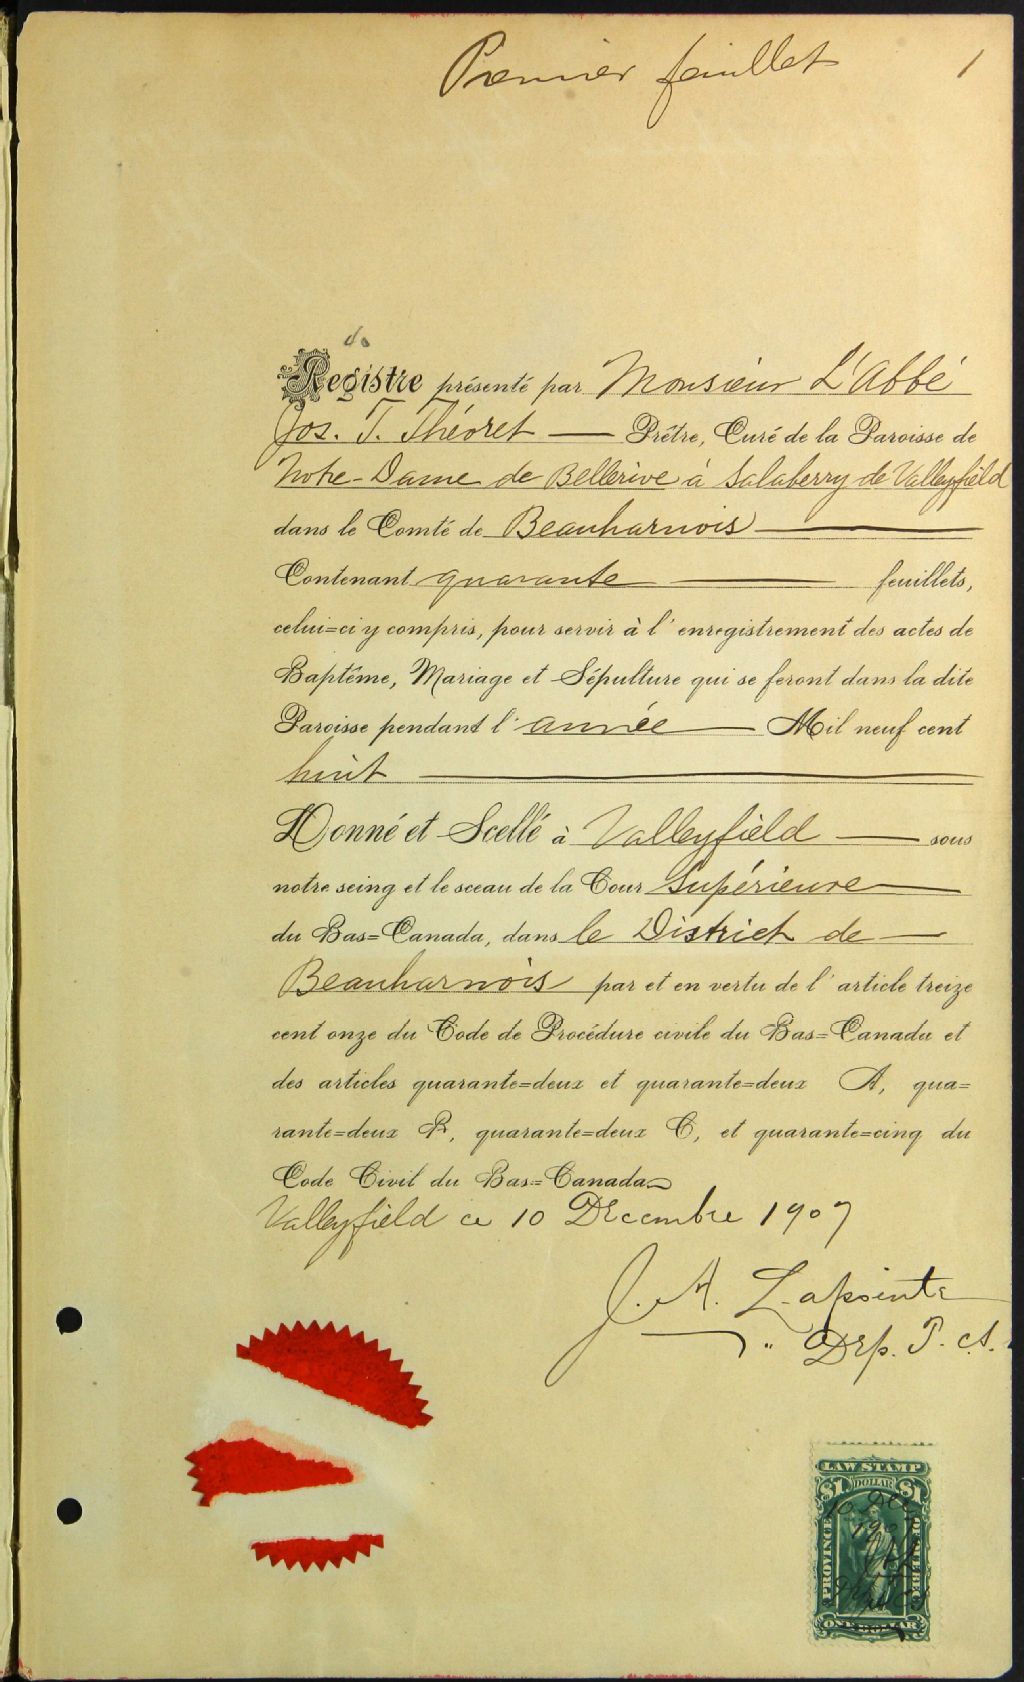 Premier feuillet 1
Registre présenté par Monsieur L'Abbé
Jos. T. Théoret — Prêtre, Curé de la Paroisse de
Notre-Dame de Bellerive à Salaberry de Valleyfield
dans le Comté de Beauharnois —
Contenant quarante — feuillets,
celui=ci y compris, pour servir à l'enregistrement des actes de
Baptême, Mariage et Sépulture qui se feront dans la dite
Paroisse pendant l'année — Mil neuf cent
huit —
Donné et Scellé à Valleyfield — sous
notre seing et le sceau de la Cour Supérieure —
du Bas=Canada, dans le District de —
Beauharnois par et en vertu de l'article treize
cent onze du Code de Procédure civile du Bas=Canada et
des articles quarante=deux et quarante=deux A, qua=
rante=deux B, quarante=deux C, et quarante=cinq du
Code Civil du Bas=Canada
Valleyfield ce 10 Décembre 1907
J. A. Lapointe
Dép. P. C. S.
LAW STAMP
$1 DOLLAR $1
PROVINCE OF QUEBEC
10 Déc
1907
ONE DOLLAR